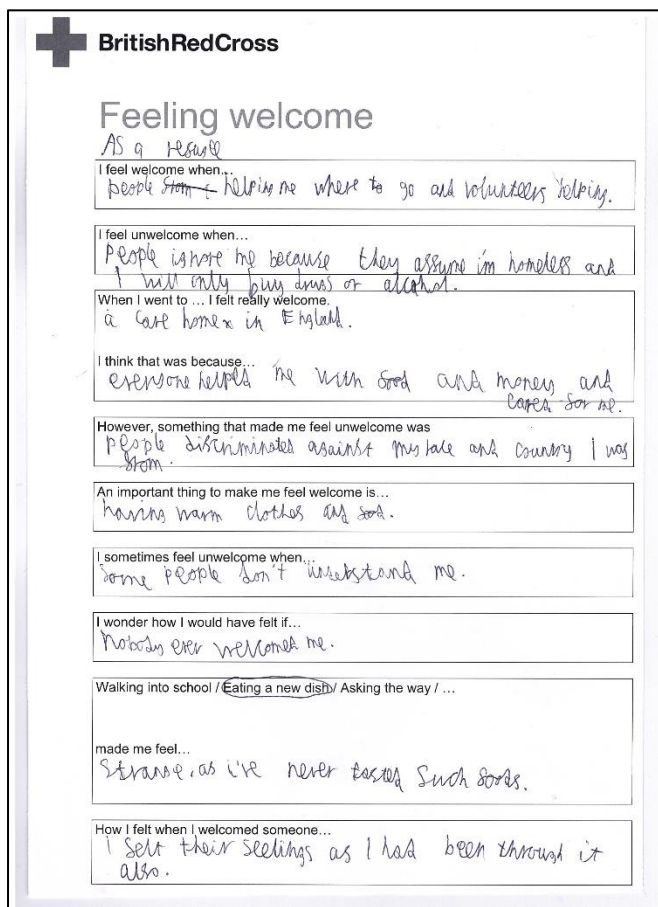 BritishRedCross
Feeling welcome
As a
I feel welcome when...
people helping me where to go and volunteers helping.
I feel unwelcome when...
People ignore me because they assume i'm homeless and
I will only buy drugs or alcohol.
When I went to ... I felt really welcome.
a care home in England.
I think that was because...
everyone helped me with food and money and
cared for me.
However, something that made me feel unwelcome was
people discriminated against my race and country I was
from.
An important thing to make me feel welcome is...
having warm clothes and food.
I sometimes feel unwelcome when...
Some people don't understand me.
I wonder how I would have felt if...
Nobody ever welcomed me.
Walking into school / Eating a new dish / Asking the way / ...
made me feel...
Strange, as i've never tasted such foods.
How I felt when I welcomed someone...
I felt their feelings as I had been through it
also.